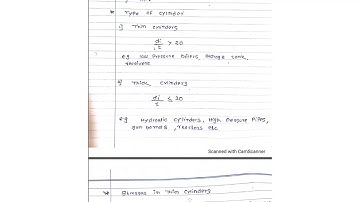 * Type of Cylinder
1) Thin cylinders
di/t > 20
eg Low Pressure Boilers, storage tank,
2) Thick cylinders
di/t ≤ 20
eg Hydraulic cylinders, High Pressure Pipes,
gun barrels, etc
Scanned with CamScanner
* Stresses in Thin Cylinders